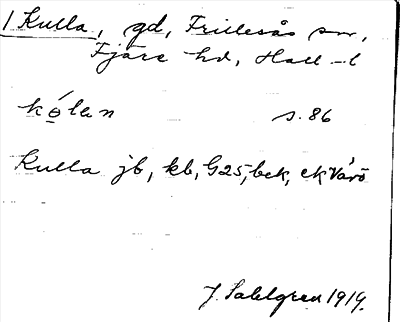 1 Kulla, gd, Frillesås sn,
Fjäre hd, Hall-l
kó̤lan s. 86
Kulla jb, kb, G25, bek, ek Värö
J. Sahlgren 1919.